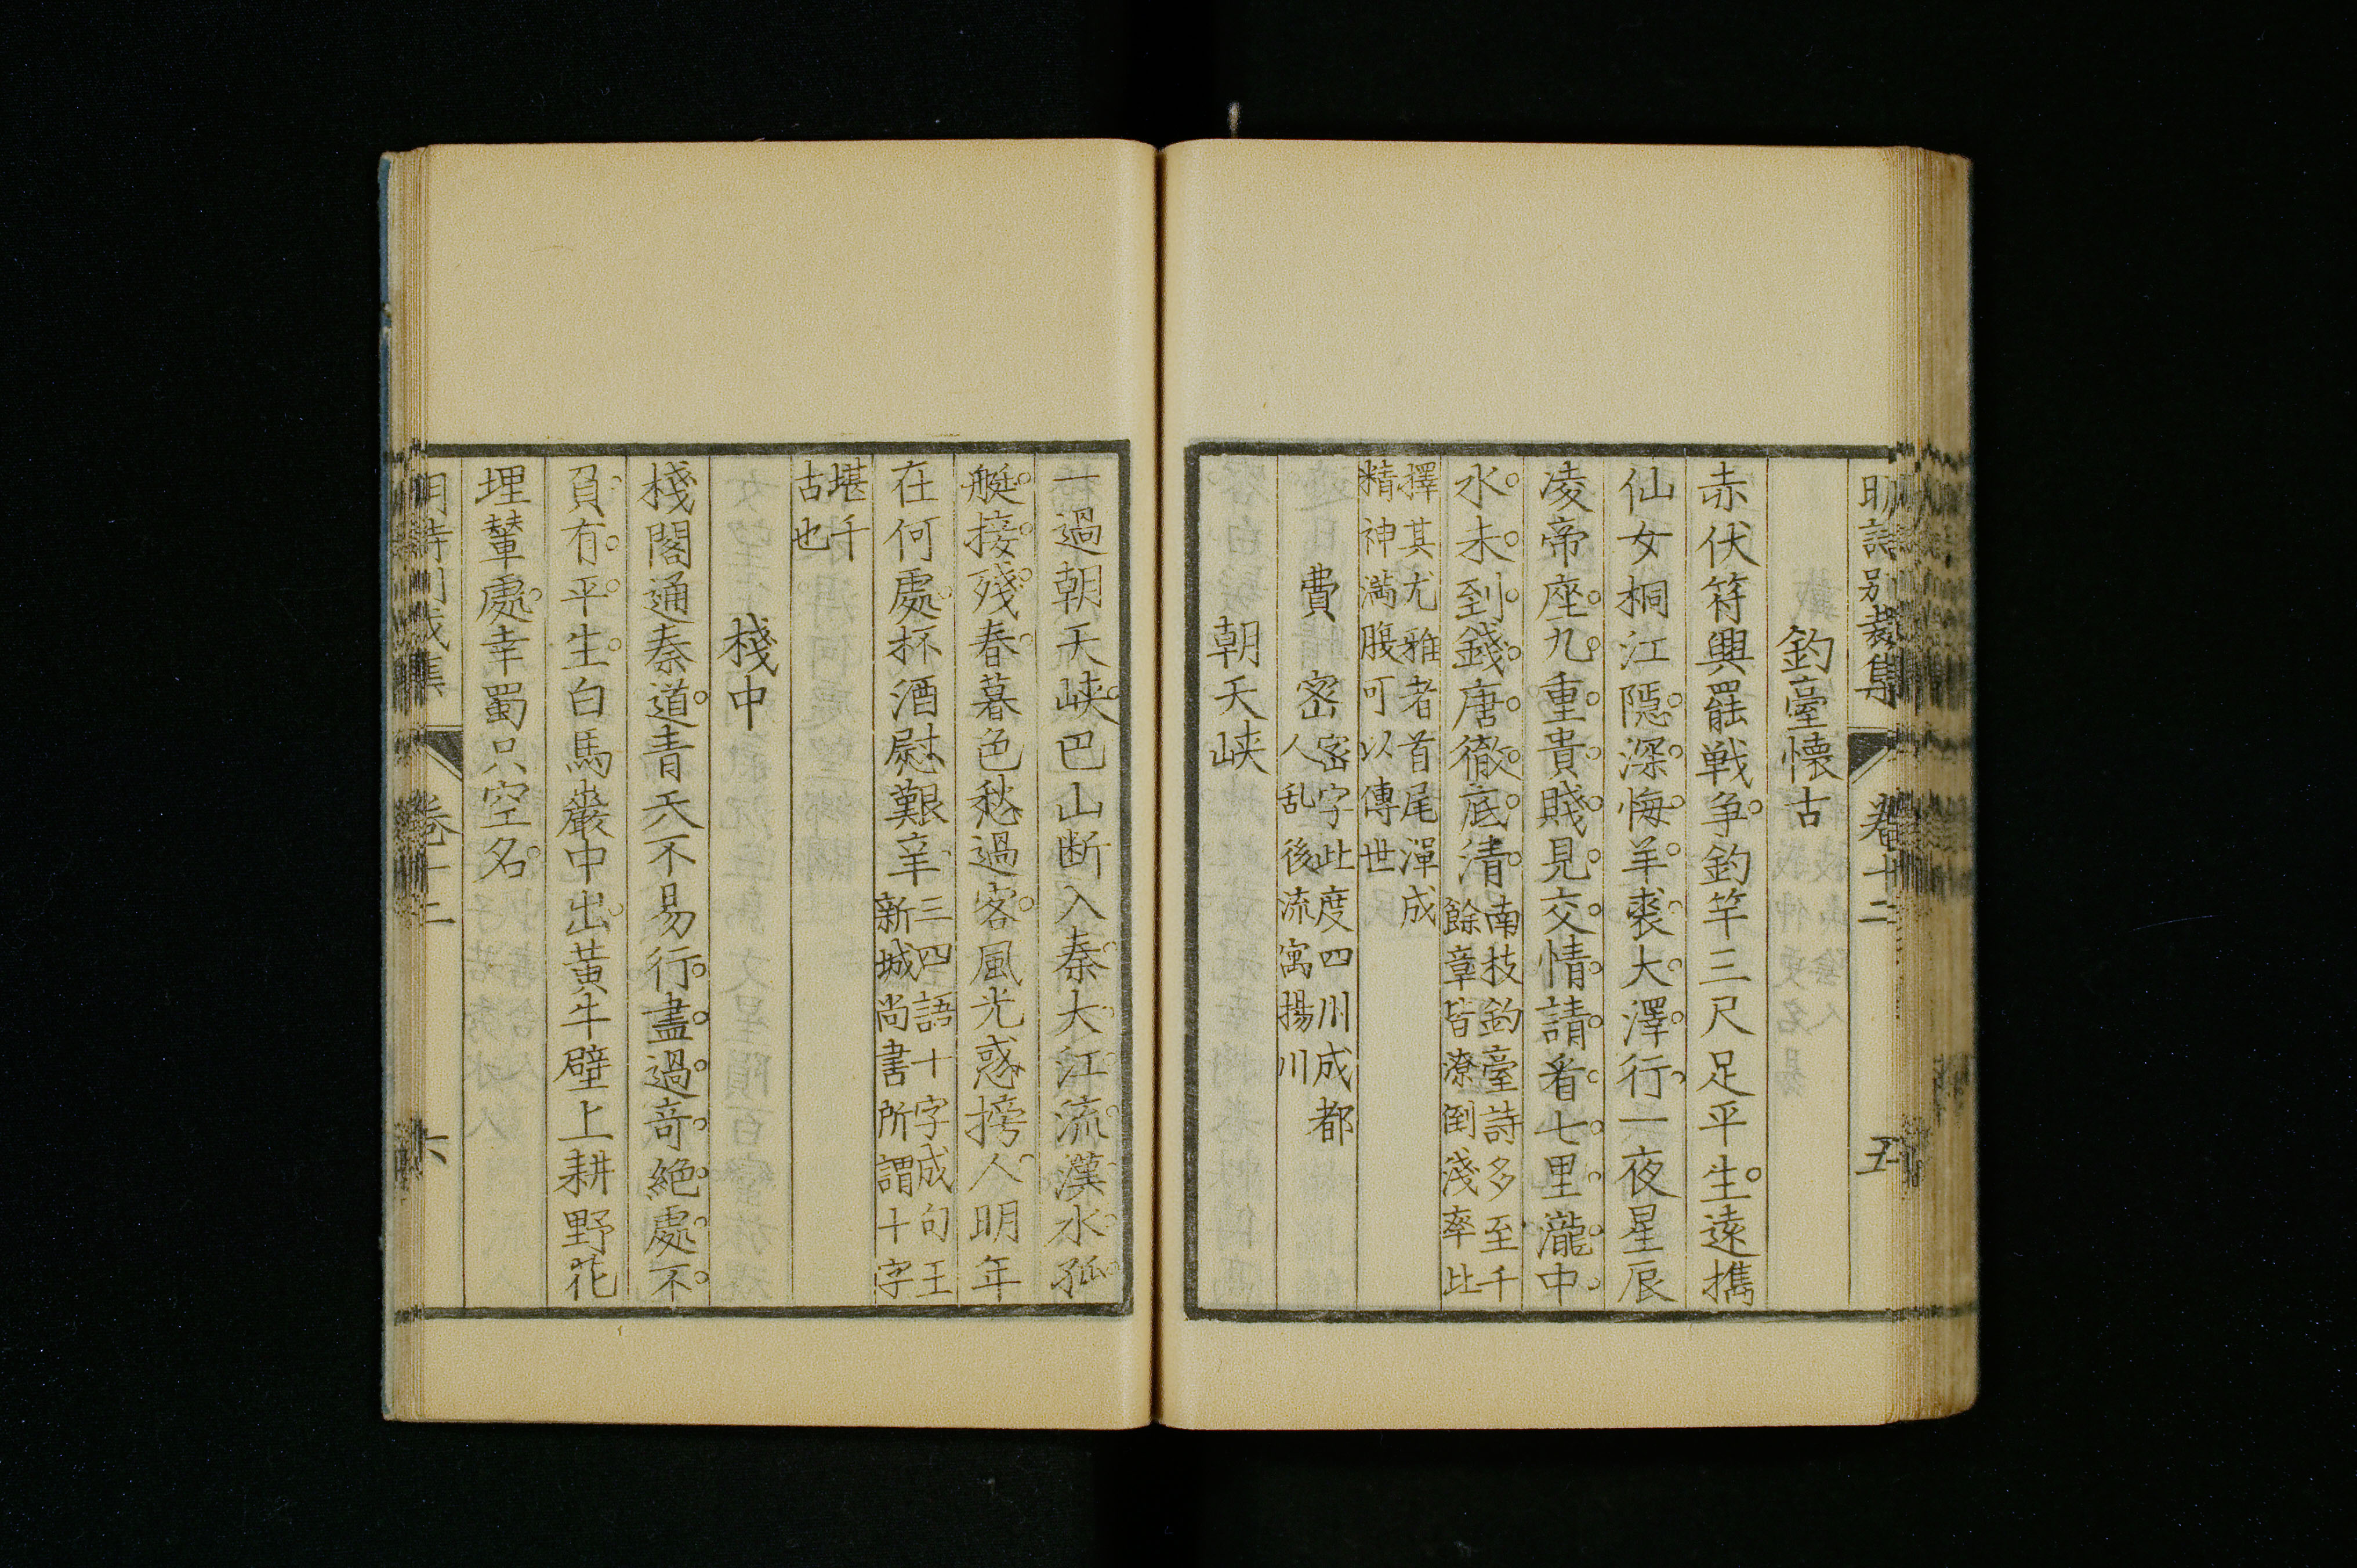 明詩別裁集 卷十二 五
釣臺懷古
赤伏符興罷戦争釣竿三尺足平生遠携
仙女桐江隱深悔羊裘大澤行一夜星辰
凌帝座九重貴賤見交情請看七里瀧中
水未到錢唐徹底清南技釣臺詩多至千
餘章皆潦倒淺率比
擇其尤雅者首尾渾成
精神滿腹可以傳世
費密密字此度四川成都
人乱後流寓揚川
朝天峡
一過朝天峡巴山断入秦大江流漢水孤
艇接殘春暮色愁過客風光惑搒人明年
在何處杯酒慰艱辛三四語十字成句王
新城尚書所謂十字
堪千
古也
棧中
棧閣通秦道青天不易行盡過竒絶處不
負有平生白馬巖中出黃牛壁上耕野花
埋輦處幸蜀只空名
明詩別裁集 卷十二 六